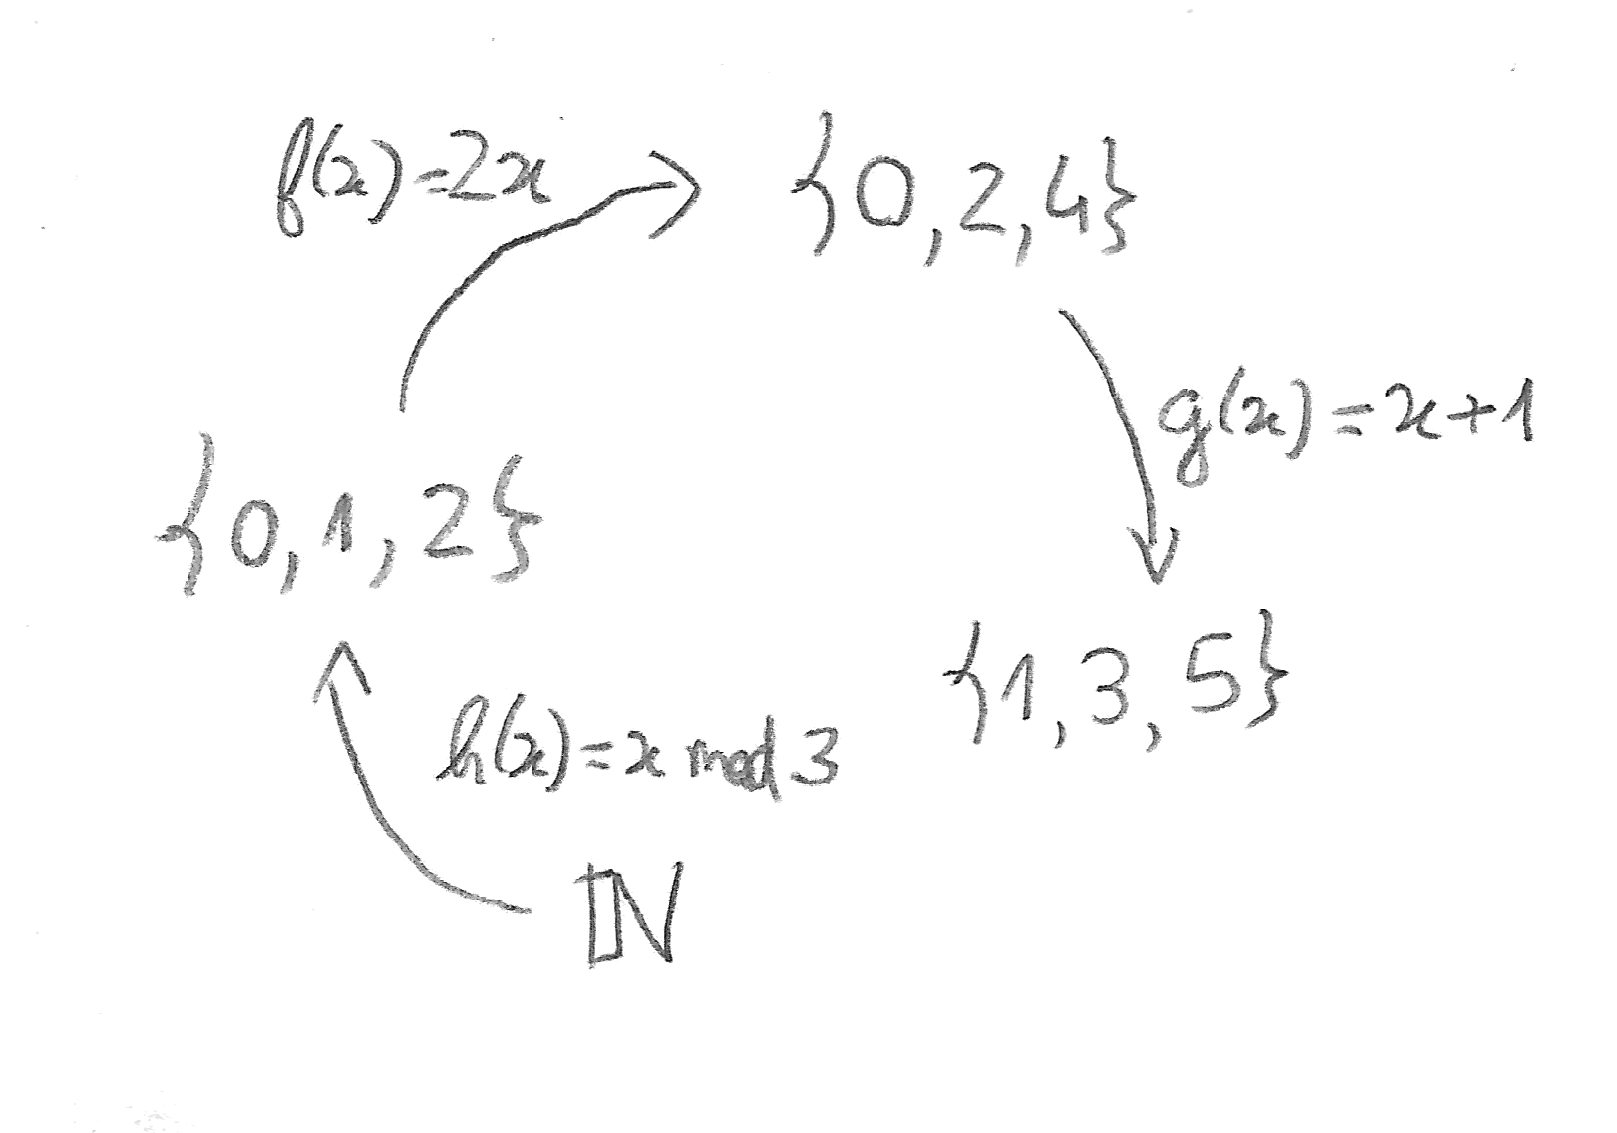 f(x)=2x
{0,2,4}
g(x)=x+1
{0,1,2}
{1,3,5}
h(x)=x mod 3
ℕ